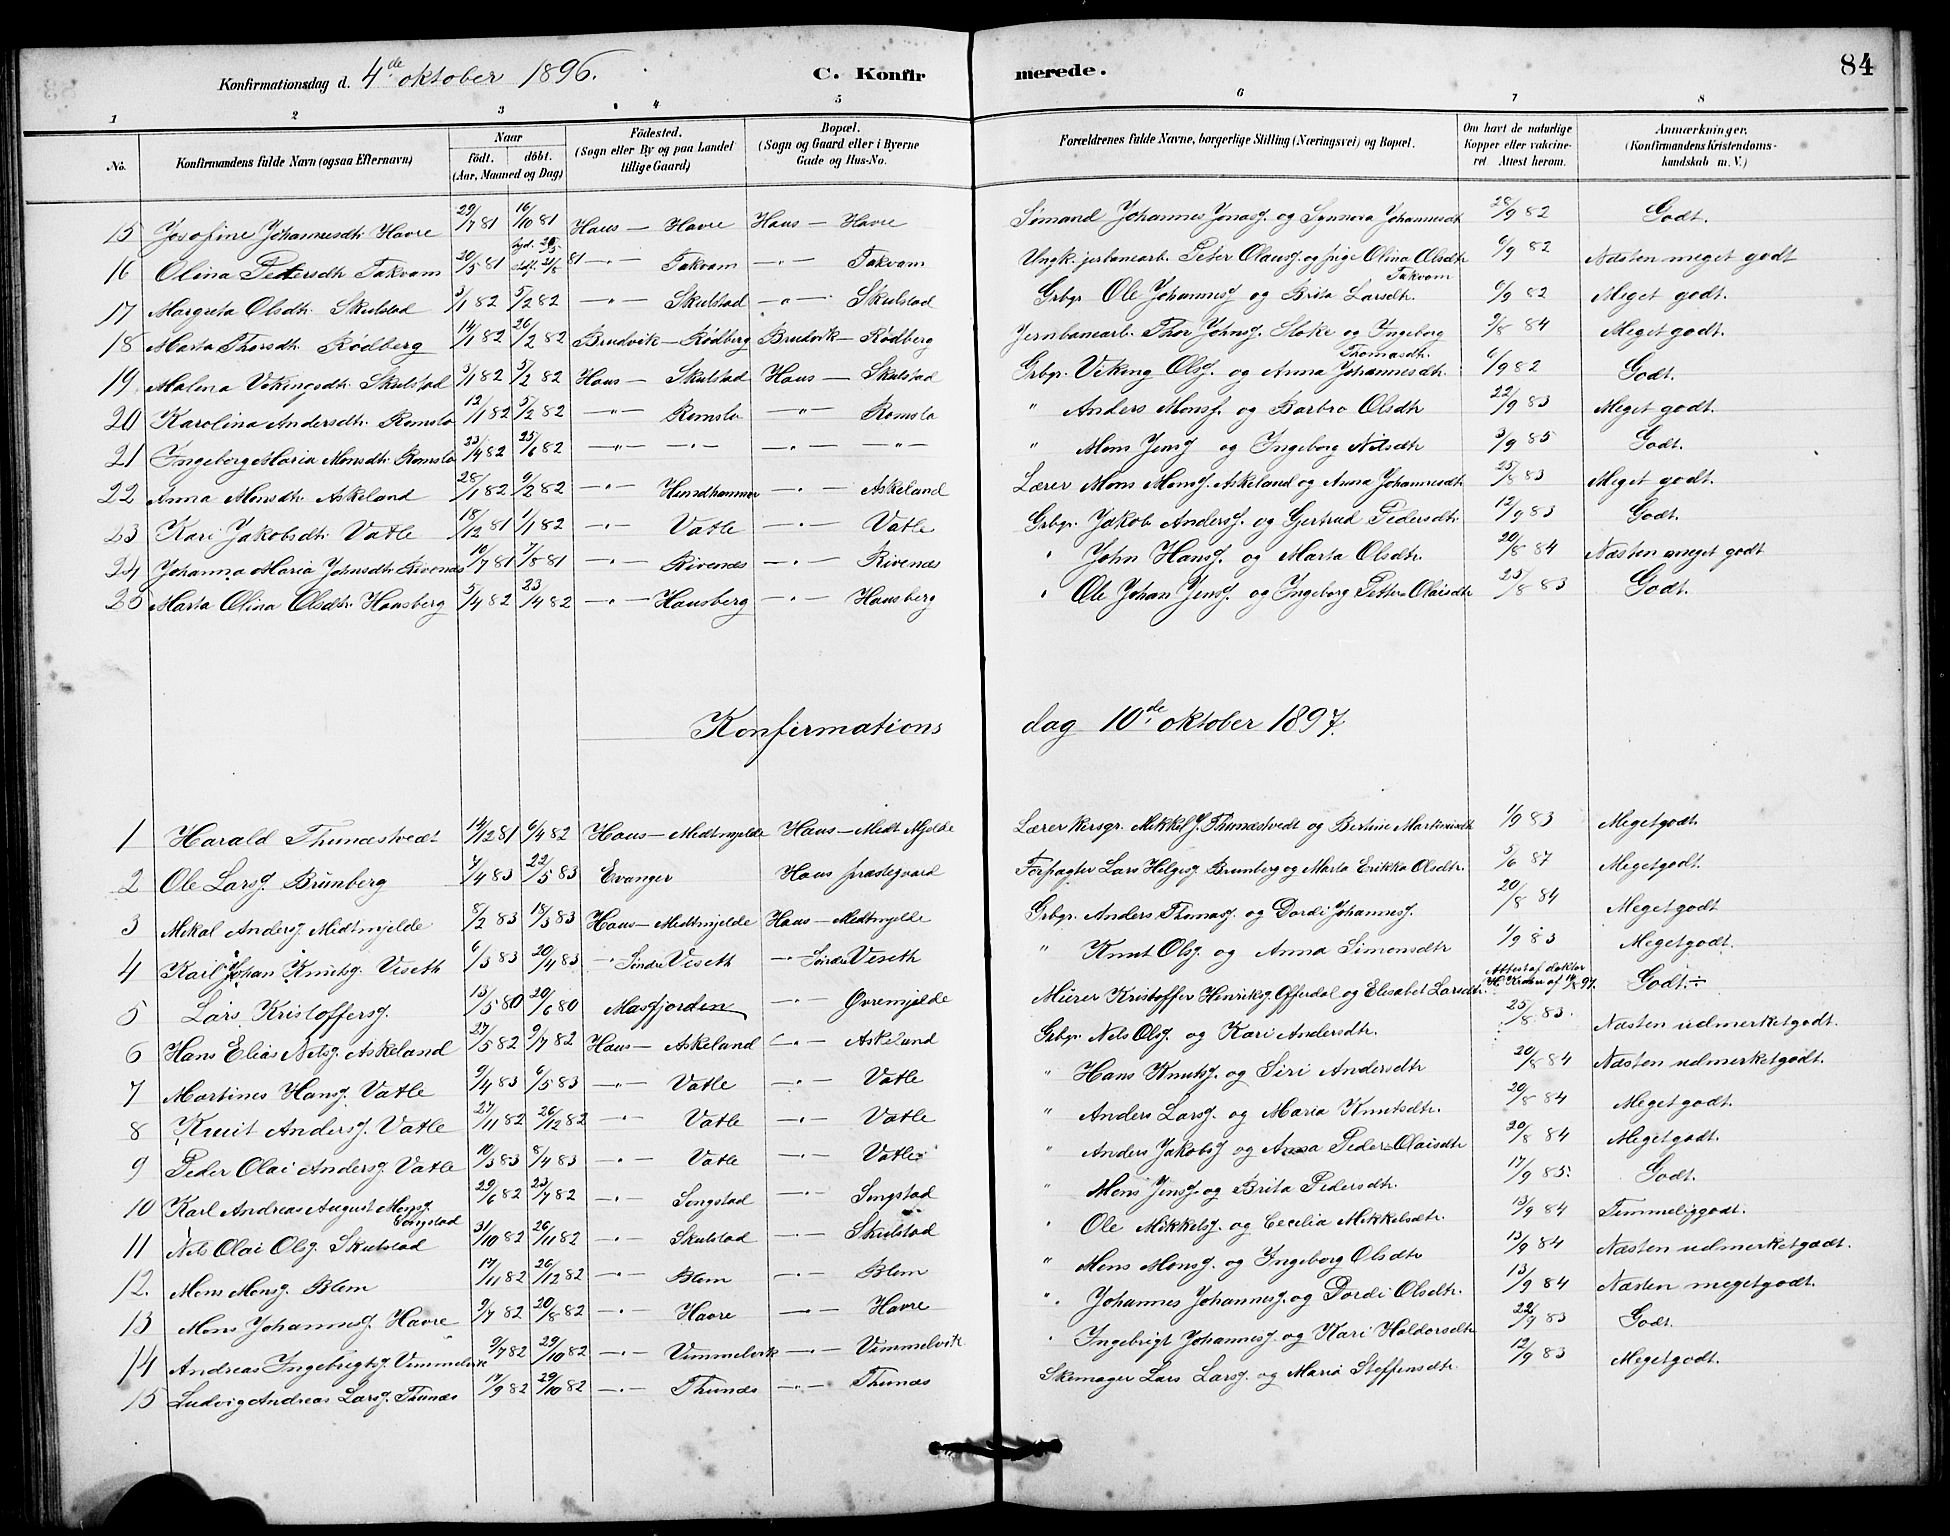 Konfirmationsdag d. 4de oktober 1896. C. Konfirmerede. 84
1 2 3 4 5 6 7 8
No. Konfirmandens fulde Navn (ogsaa Efternavn) Naar födt. döbt. (Aar, Maaned og Dag) Födested. (Sogn eller By og paa Landet tillige Gaard) Bopæl. (Sogn og Gaard eller i Byerne Gade og Hus-No. Forældrenes fulde Navne, borgerlige Stilling (Næringsvei) og Bopæl. Om havt de naturlige Kopper eller vakcineret Attest herom. Anmærkninger. (Konfirmandens Kristendomskundskab m. V.)
15 Josofine Johannesdtr. Havre 29/7 81 16/10 81 Haus — Havre Haus — Havre Sömand Johannes Jonasf. og Synneva Johannesdtr 28/9 82 Godt.
16 Olina Petersdtr Takvam 20/5 81 81 —"— Takvam —"— Takvam Ungk. jernbanearb. Peter Olausf. og pige Olina Olsdtr Takvam 6/9 82 Næsten meget godt
17 Margreta Olsdtr. Skulstad 3/1 82 5/2 82 —"— Skulstad —"— Skulstad Grbgr Ole Johannesf og Brita Larsdtr. 6/9 82 Meget godt.
18 Marta Thorsdtr. Rödberg 14/1 82 26/2 82 Brudvik — Rödberg Brudvik — Rödberg Jernbanearb. Thor Johnsf. Stoke og Ingeborg Thomasdtr. 9/8 84 Meget godt.
19 Malena Vikingsdtr. Skulstad 3/1 82 5/2 82 Haus — Skulstad Haus — Skulstad Grbgr. Viking Olsf. og Anna Johannesdtr. 6/9 82 Godt.
20 Karolina Andersdtr. Romslo 12/1 82 5/2 82 —"— Romslo —"— Romslo " Anders Monsf. og Barbro Olsdtr 22/9 83 Meget godt.
21 Ingeborg Maria Monsdtr. Romslo 23/4 82 25/6 82 —"— —"— —"— —"— " Mons Jensf og Ingeborg Nilsdtr 3/9 85 Godt.
22 Anna Monsdtr. Askeland 28/1 82 9/2 82 —"— Hundhammer —"— Askeland Lærer Mons Monsf. Askeland og Anna Johannesdtr. 25/8 83 Meget godt.
23 Kari Jakobsdtr. Vatle 18/12 81 1/1 82 —"— Vatle —"— Vatle Grbgr. Jakob Andersf. og Gertrud Pedersdtr. 12/9 83 Godt.
24 Johanna Maria Johnsdtr. Rivenæs 10/7 81 7/8 81 —"— Rivenæs —"— Rivenæs " John Hansf. og Marta Olsdtr. 20/8 84 Næsten meget godt
25 Marta Olina Olsdtr. Hausberg 5/4 82 23/4 82 —"— Hausberg —"— Hausberg " Ole Johan Jensf. og Ingeborg Petter Olaisdtr 25/8 83 Godt.
Konfirmationsdag 10de oktober 1897.
1 Harald Thunæstvedt 14/12 81 6/4 82 Haus — Midtmjelde Haus — Midt Mjelde Lærer kirkesgr. Mikkel J. Thunæstvedt og Bertine Martinsdtr 1/9 83 Megetgodt.
2 Ole Larsf. Brunberg 7/4 83 22/5 83 Evanger Haus præstegaard Forpagter Lars Helgesf. Brunberg og Marta Erikka Olsdtr. 5/6 87 Megetgodt.
3 Mikal Andersf. Midtmjelde 8/2 83 18/3 83 Haus — Midtmjelde Haus — Midtmjelde Grbgr. Anders Thomasf. og Dordi Johannesf. 20/8 84 Megetgodt
4 Karl Johan Knutsf. Veseth 6/3 83 20/4 83 —"— Söndre Veseth —"— Söndre Veseth " Knut Olsf og Anna Simonsdtr 1/9 83 Megetgodt.
5 Lars Kristoffersf. 13/5 80 20/6 80 Masfjorden —"— Øvremjelde Murer Kristoffer Henriksf. Offerdal og Elisabet Larsdtr. Attest af doktor H. Krohn af 14/8 97. Godt.÷
6 Hans Elias Nelsf. Askeland 27/5 82 9/7 82 Haus — Askeland —"— Askeland Grbgr. Nels Olsf. og Kari Andersdtr. 25/8 83. Næsten udmerketgodt.
7 Martines Hansf. Vatle 9/4 83 6/5 83 —"— Vatle —"— Vatle " Hans Knutsf. og Siri Andersdtr 20/8 84 Næsten udmerketgodt.
8 Knut Andersf. Vatle 27/11 82 26/12 82 —"— Vatle —"— Vatle " Anders Larsf. og Maria Knutsdtr. 20/8 84 Megetgodt.
9 Peder Olai Andersf. Vatle 10/3 83 8/4 83 —"— Vatle —"— Vatle " Anders Jakobsf og Anna Peder Olaisdtr 20/8 84 Megetgodt.
10 Karl Andreas August Monsf. Songstad 29/6 82 23/7 82 —"— Songstad —"— Songstad " Mons Jensf. og Brita Pedersdtr. 17/9 85. Godt.
11 Nels Olai Olsf. Skulstad 31/10 82 26/11 82 —"— Skulstad —"— Skulstad " Ole Mikkelsf. og Cecilia Mikkelsdtr. 13/9 84 Temmeliggodt.
12. Mons Monsf. Blom 17/11 82 26/12 82 —"— Blem —"— Blem " Mons Monsf. og Ingeborg Olsdtr 13/9 84 Næsten udmerketgodt.
13 Mons Johannesf. Havre 9/7 82 20/8 82 —"— Havre —"— Havre " Johannes Johannesf. og Dordi Olsdtr. 13/9 84 Næsten megetgodt.
14 Andreas Ingebrigtsf. Vimmelvik 9/7 82 29/10 82 —"— Vimmelvik —"— Vimmelvik " Ingebrigt Johannesf. og Kari Haldorsdtr 22/9 83 Godt.
15 Ludvig Andreas Larsf. Thunæs 17/9 82 29/10 82 —"— Thunæs —"— Thunæs Skomager Lars Larsf. og Maria Steffensdtr. 12/9 83 Megetgodt.